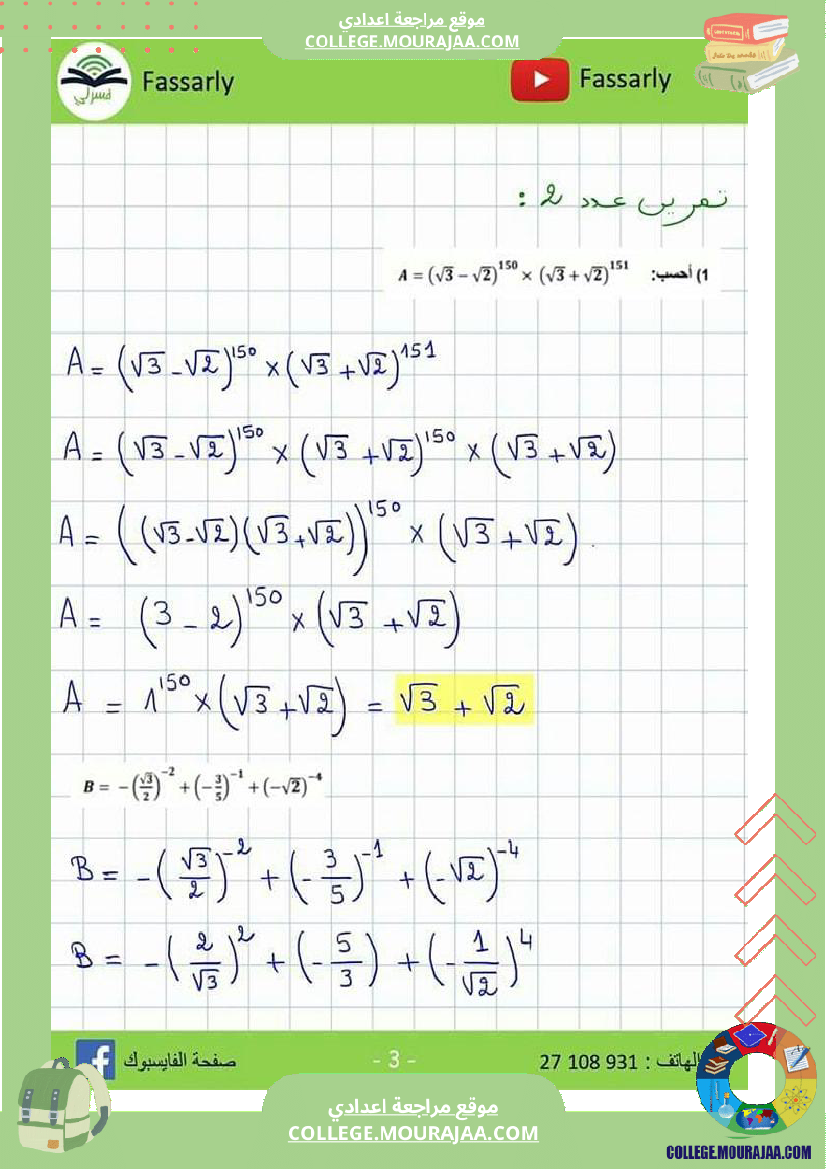 موقع مراجعة اعدادي
COLLEGE.MOURAJAA.COM
Fassarly
Fassarly
فسرلي
تمرين عدد 2 :
1) أحسب: A = (√3 − √2)^150 × (√3 + √2)^151
A = (√3 - √2)^150 × (√3 + √2)^151
A = (√3 - √2)^150 × (√3 + √2)^150 × (√3 + √2)
A = ((√3 - √2)(√3 + √2))^150 × (√3 + √2).
A = (3 - 2)^150 × (√3 + √2)
A = 1^150 × (√3 + √2) = √3 + √2
B = −(√3/2)^−2 + (−3/5)^−1 + (−√2)^−4
B = -(√3/2)^-2 + (-3/5)^-1 + (-√2)^-4
B = -(2/√3)^2 + (-5/3) + (-1/√2)^4
صفحة الفايسبوك
- 3 -
الهاتف : 27 108 931
موقع مراجعة اعدادي
COLLEGE.MOURAJAA.COM
COLLEGE.MOURAJAA.COM